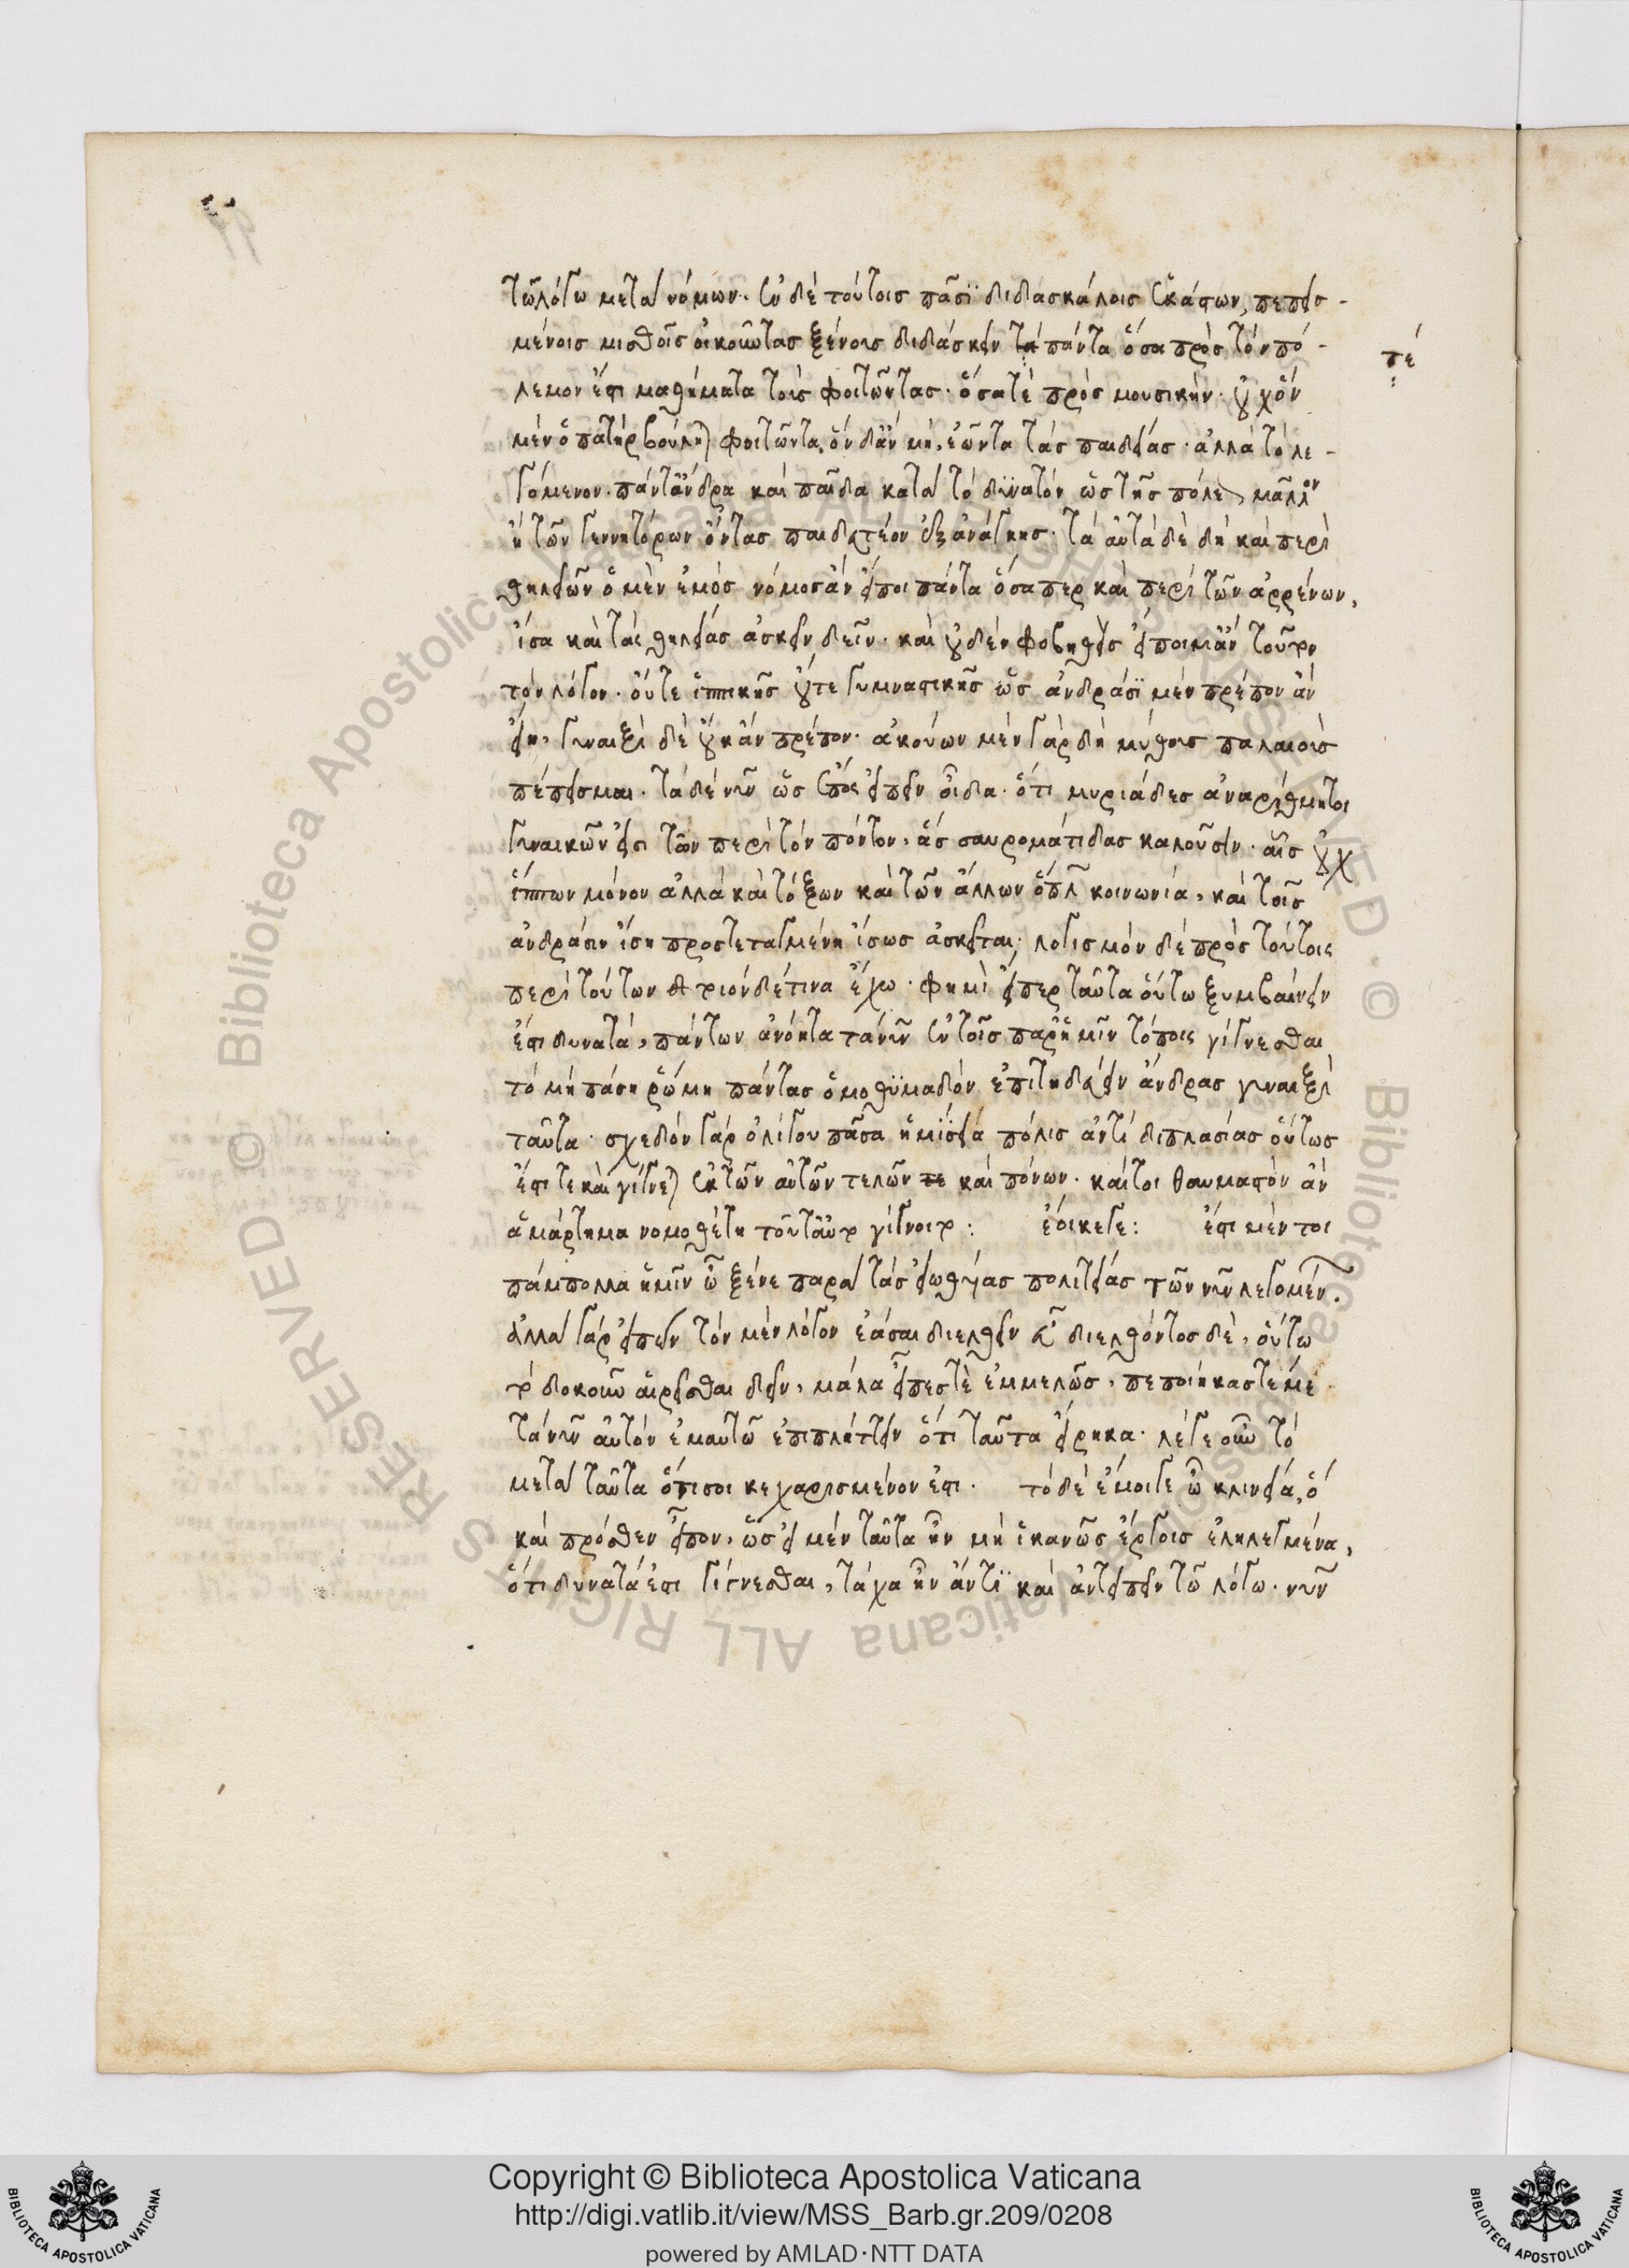 τῶ λόγω μετὰ νόμων· ἐν δὲ τούτοις πᾶσϊ διδασκάλοις ἑκάστων, πεπεισ-
μένοις μισθοῖς οἰκοῦντας ξένους διδάσκειν τὰ πάντα ὅσα πρὸς τὸν πό-
πέ
λεμον ἐστι μαθήματα τοὺς φοιτῶντας· ὅσα τὲ πρὸς μουσικήν· οὐχ ὅν
μὲν ὁ πατὴρ βούληται φοιτῶντα, ὃν δ' ἂν μὴ, ἐῶντα τὰς παιδείας· ἀλλὰ τὸ λε-
γόμενον· πάντ' ἄνδρα καὶ παῖδα κατὰ τὸ δϋνατόν ὡς τῆς πόλεως μᾶλλον
ἢ τῶν γεννητόρων ὄντας παιδευτέον ἐξ ἀνάγκης· τὰ αὐτὰ δὲ δὴ καὶ περὶ
θηλειῶν ὁ μὲν ἐμὸς νόμος ἂν εἴποι πάντα ὅσα περ καὶ περὶ τῶν ἀρρένων,
ἴσα καὶ τὰς θηλείας ἀσκεῖν δεῖν· καὶ οὐδὲν φοβηθεὶς εἴποιμ' ἂν τοῦτον
τὸν λόγον· οὔτε ἱππικῆς οὔτε γυμναστικῆς ὡς ἀνδράσϊ μὲν πρέπον ἂν
εἴη, γυναιξὶ δὲ οὐκ ἂν πρέπον· ἀκούων μὲν γὰρ δὴ μύθους παλαιοὺς
πέπεισμαι· τὰ δὲ νῦν ὡς ἔπος εἰπεῖν οἶδα· ὅτι μυριάδες ἀναρίθμητοι
γυναικῶν εἰσι τῶν περὶ τὸν πόντον, ἃς σαυρομάτιδας καλοῦσιν· αἷς οὐχ
ἵππων μόνον ἀλλὰ καὶ τόξων καὶ τῶν ἄλλων ὅπλων κοινωνία, καὶ τοῖς
ἀνδράσιν ἴση προστεταγμένη ἴσως ἀσκεῖται· λογισμὸν δὲ πρὸς τούτοις
περὶ τούτων τοιόνδέ τινα ἔχω· φημὶ εἴπερ ταῦτα οὕτω ξυμβαίνειν
ἐστι δυνατά, πάντων ἀνόητα τανῦν ἐν τοῖς παρ' ἡμῖν τόποις γίγνεσθαι
τὸ μὴ πάση ῥώμη πάντας ὁμοθϋμαδὸν ἐπιτηδεύειν ἄνδρας γυναιξὶ
ταῦτα· σχεδὸν γὰρ ὀλίγου πᾶσα ἡμίσεια πόλις ἀντὶ διπλασίας οὕτως
ἐστι τε καὶ γίγνεται ἐκ τῶν αὐτῶν τελῶν τε καὶ πόνων· καίτοι θαυμαστὸν ἂν
ἁμάρτημα νομοθέτη τοῦτ' αὐτὸ γίγνοιτο: ἔοικεγε: ἔστι μέν τοι
πάμπολλα ἡμῖν ὦ ξένε παρὰ τὰς εἰωθυίας πολιτείας τῶν νῦν λεγομένων.
ἀλλὰ γὰρ εἰπὼν τὸν μὲν λόγον ἐάσαι διελθεῖν εὖ διελθόντος δὲ, οὕτω
τὸ δοκοῦν αἱρεῖσθαι δεῖν, μάλα εἶπές τὲ ἐμμελῶς, πεποίηκάς τέ με
τανῦν αὐτὸν ἐμαυτῶ ἐπιπλήττειν ὅτι ταῦτα εἴρηκα· λέγε οὖν τὸ
μετὰ ταῦτα ὅτι σοι κεχαρισμένον ἐστι· τόδε ἔμοιγε ὦ κλεινία, ὃ
καὶ πρόσθεν εἶπον, ὡς εἰ μὲν ταῦτα ἦν μὴ ἱκανῶς ἔργοις ἐληλεγμένα,
ὅτι δυνατά ἐστι γίγνεσθαι, τάχα ἦν ἄν τϊ καὶ ἀντειπεῖν τῶ λόγω· νῦν
© Biblioteca Apostolica Vaticana ALL RIGHTS RESERVED · © Biblioteca Apostolica Vaticana ALL RIGHTS RESERVED
BIBLIOTECA APOSTOLICA VATICANA
Copyright © Biblioteca Apostolica Vaticana
http://digi.vatlib.it/view/MSS_Barb.gr.209/0208
powered by AMLAD·NTT DATA
BIBLIOTECA APOSTOLICA VATICANA